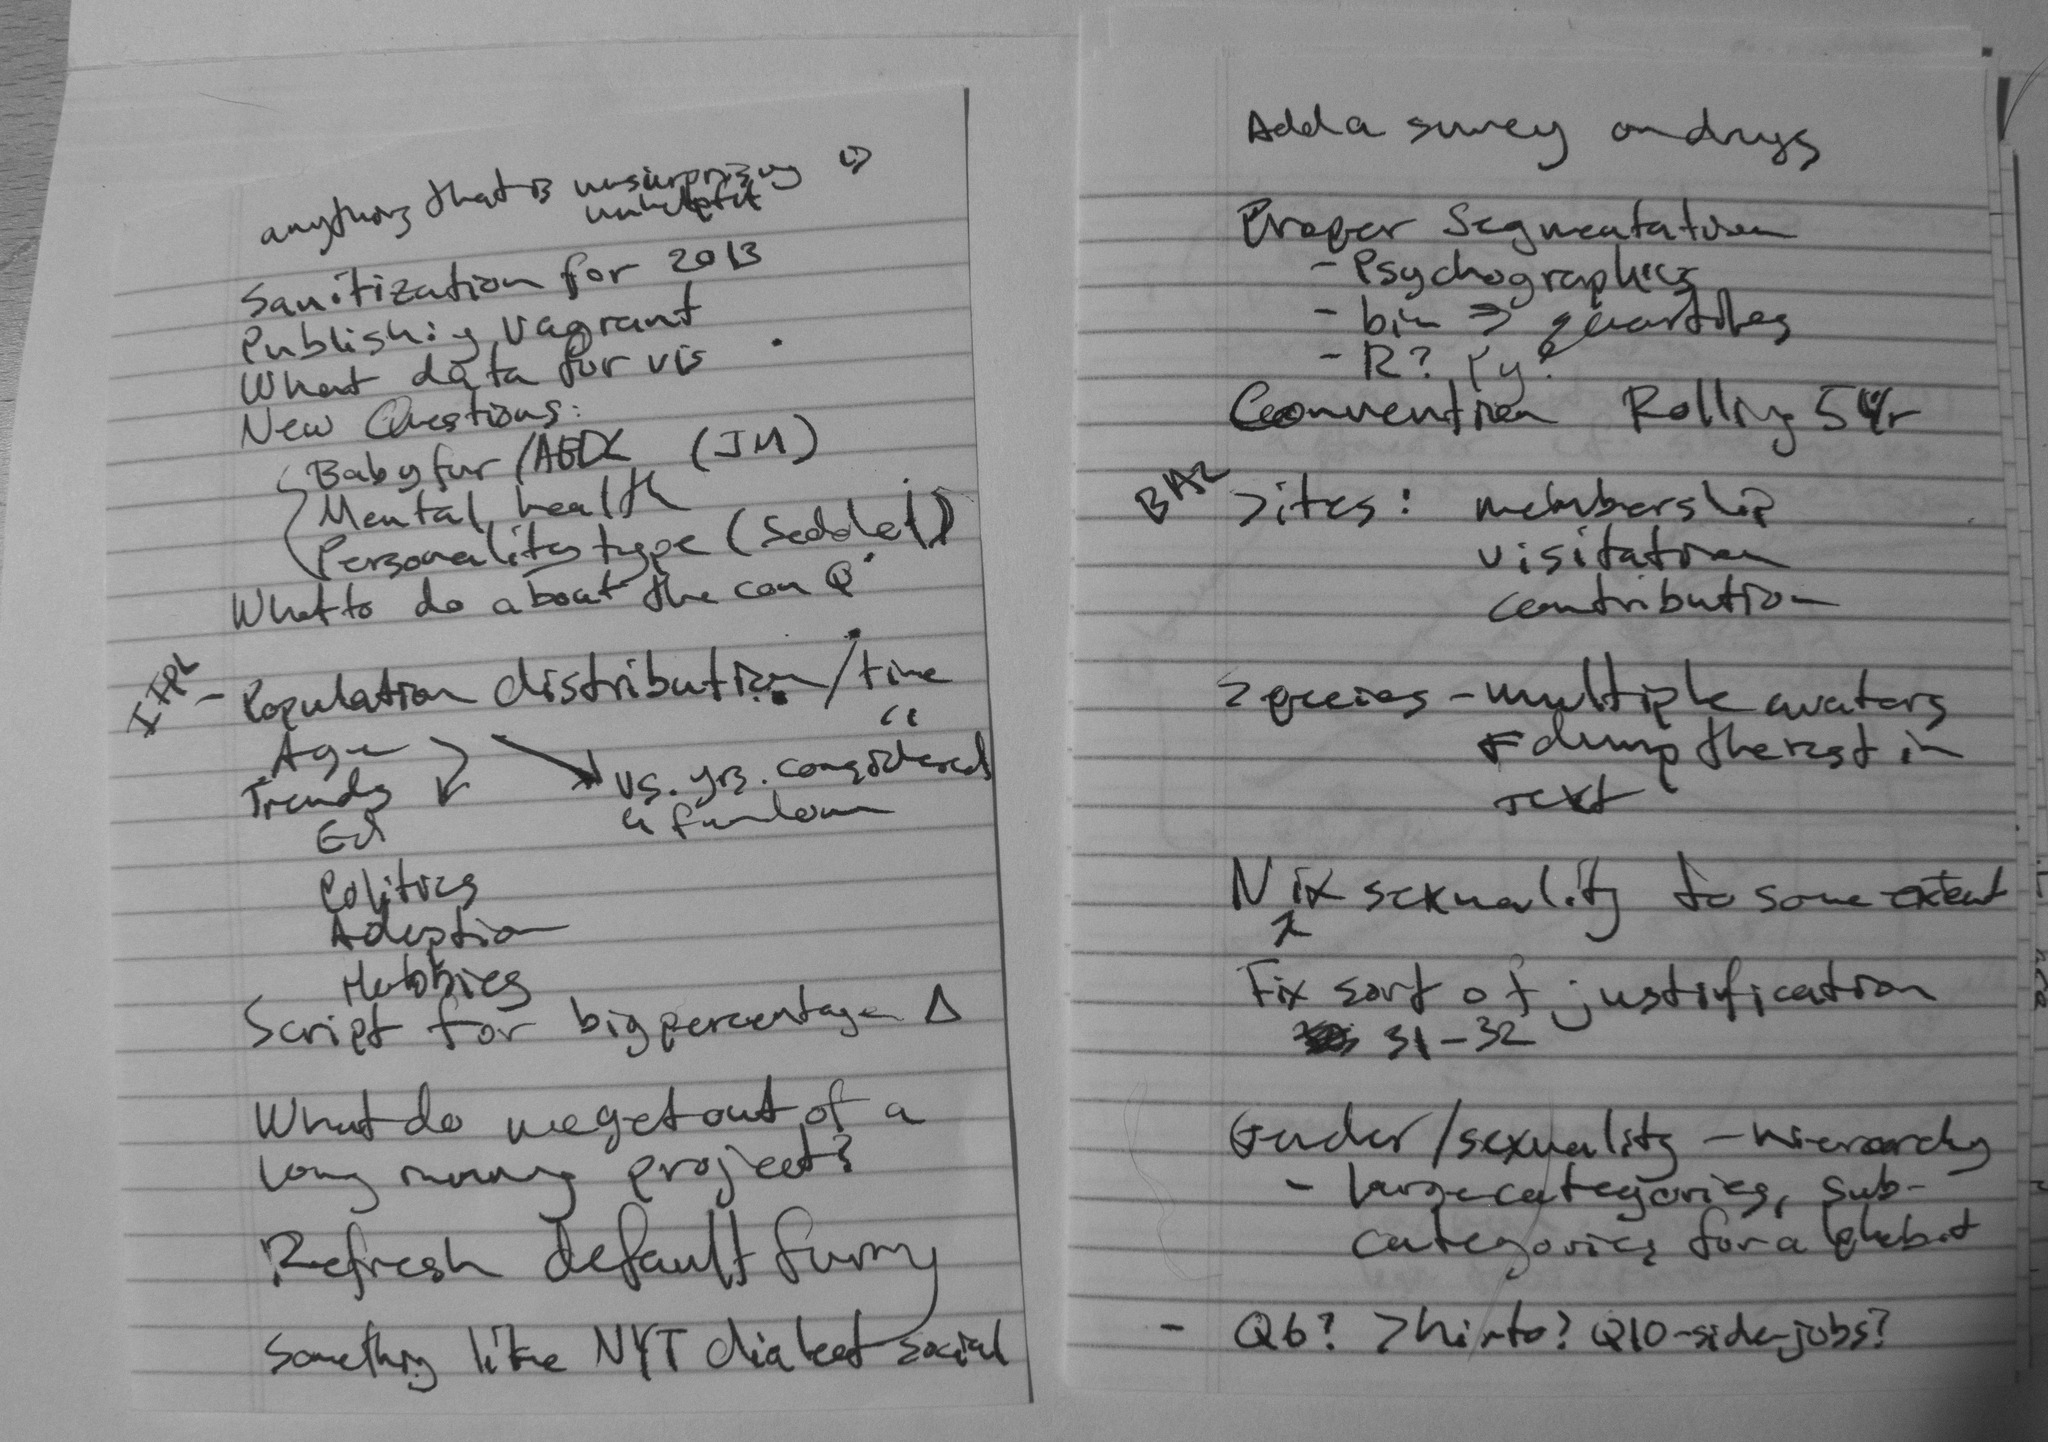 anything that is unsurprising is
unhelpful
Sanitization for 2013
Publishing Vagrant
What data for vis
New Questions:
Babyfur / (JM)
Mental health
Personality type
What to do about the con Q
- Population distribution / time
Age
Trends
vs. yrs. considered
a
Ed
Politics
Adoption
Hobbies
Script for big percentage Δ
What do we get out of a
long running project?
Refresh default furry
Something like NYT dialect social
Add a survey on drugs
Proper Segmentation
- Psychographics
- bin ⇒ quartiles
- R? Py?
Convention Rolling 5 Yr
Sites: membership
visitation
contribution
Species - multiple avatars
dump the rest in
text
Nix sexuality to some extent
Fix sort of justification
31-32
Gender/sexuality - hierarchy
- large categories, sub-
categories for a
- Q6? Q10-side-jobs?